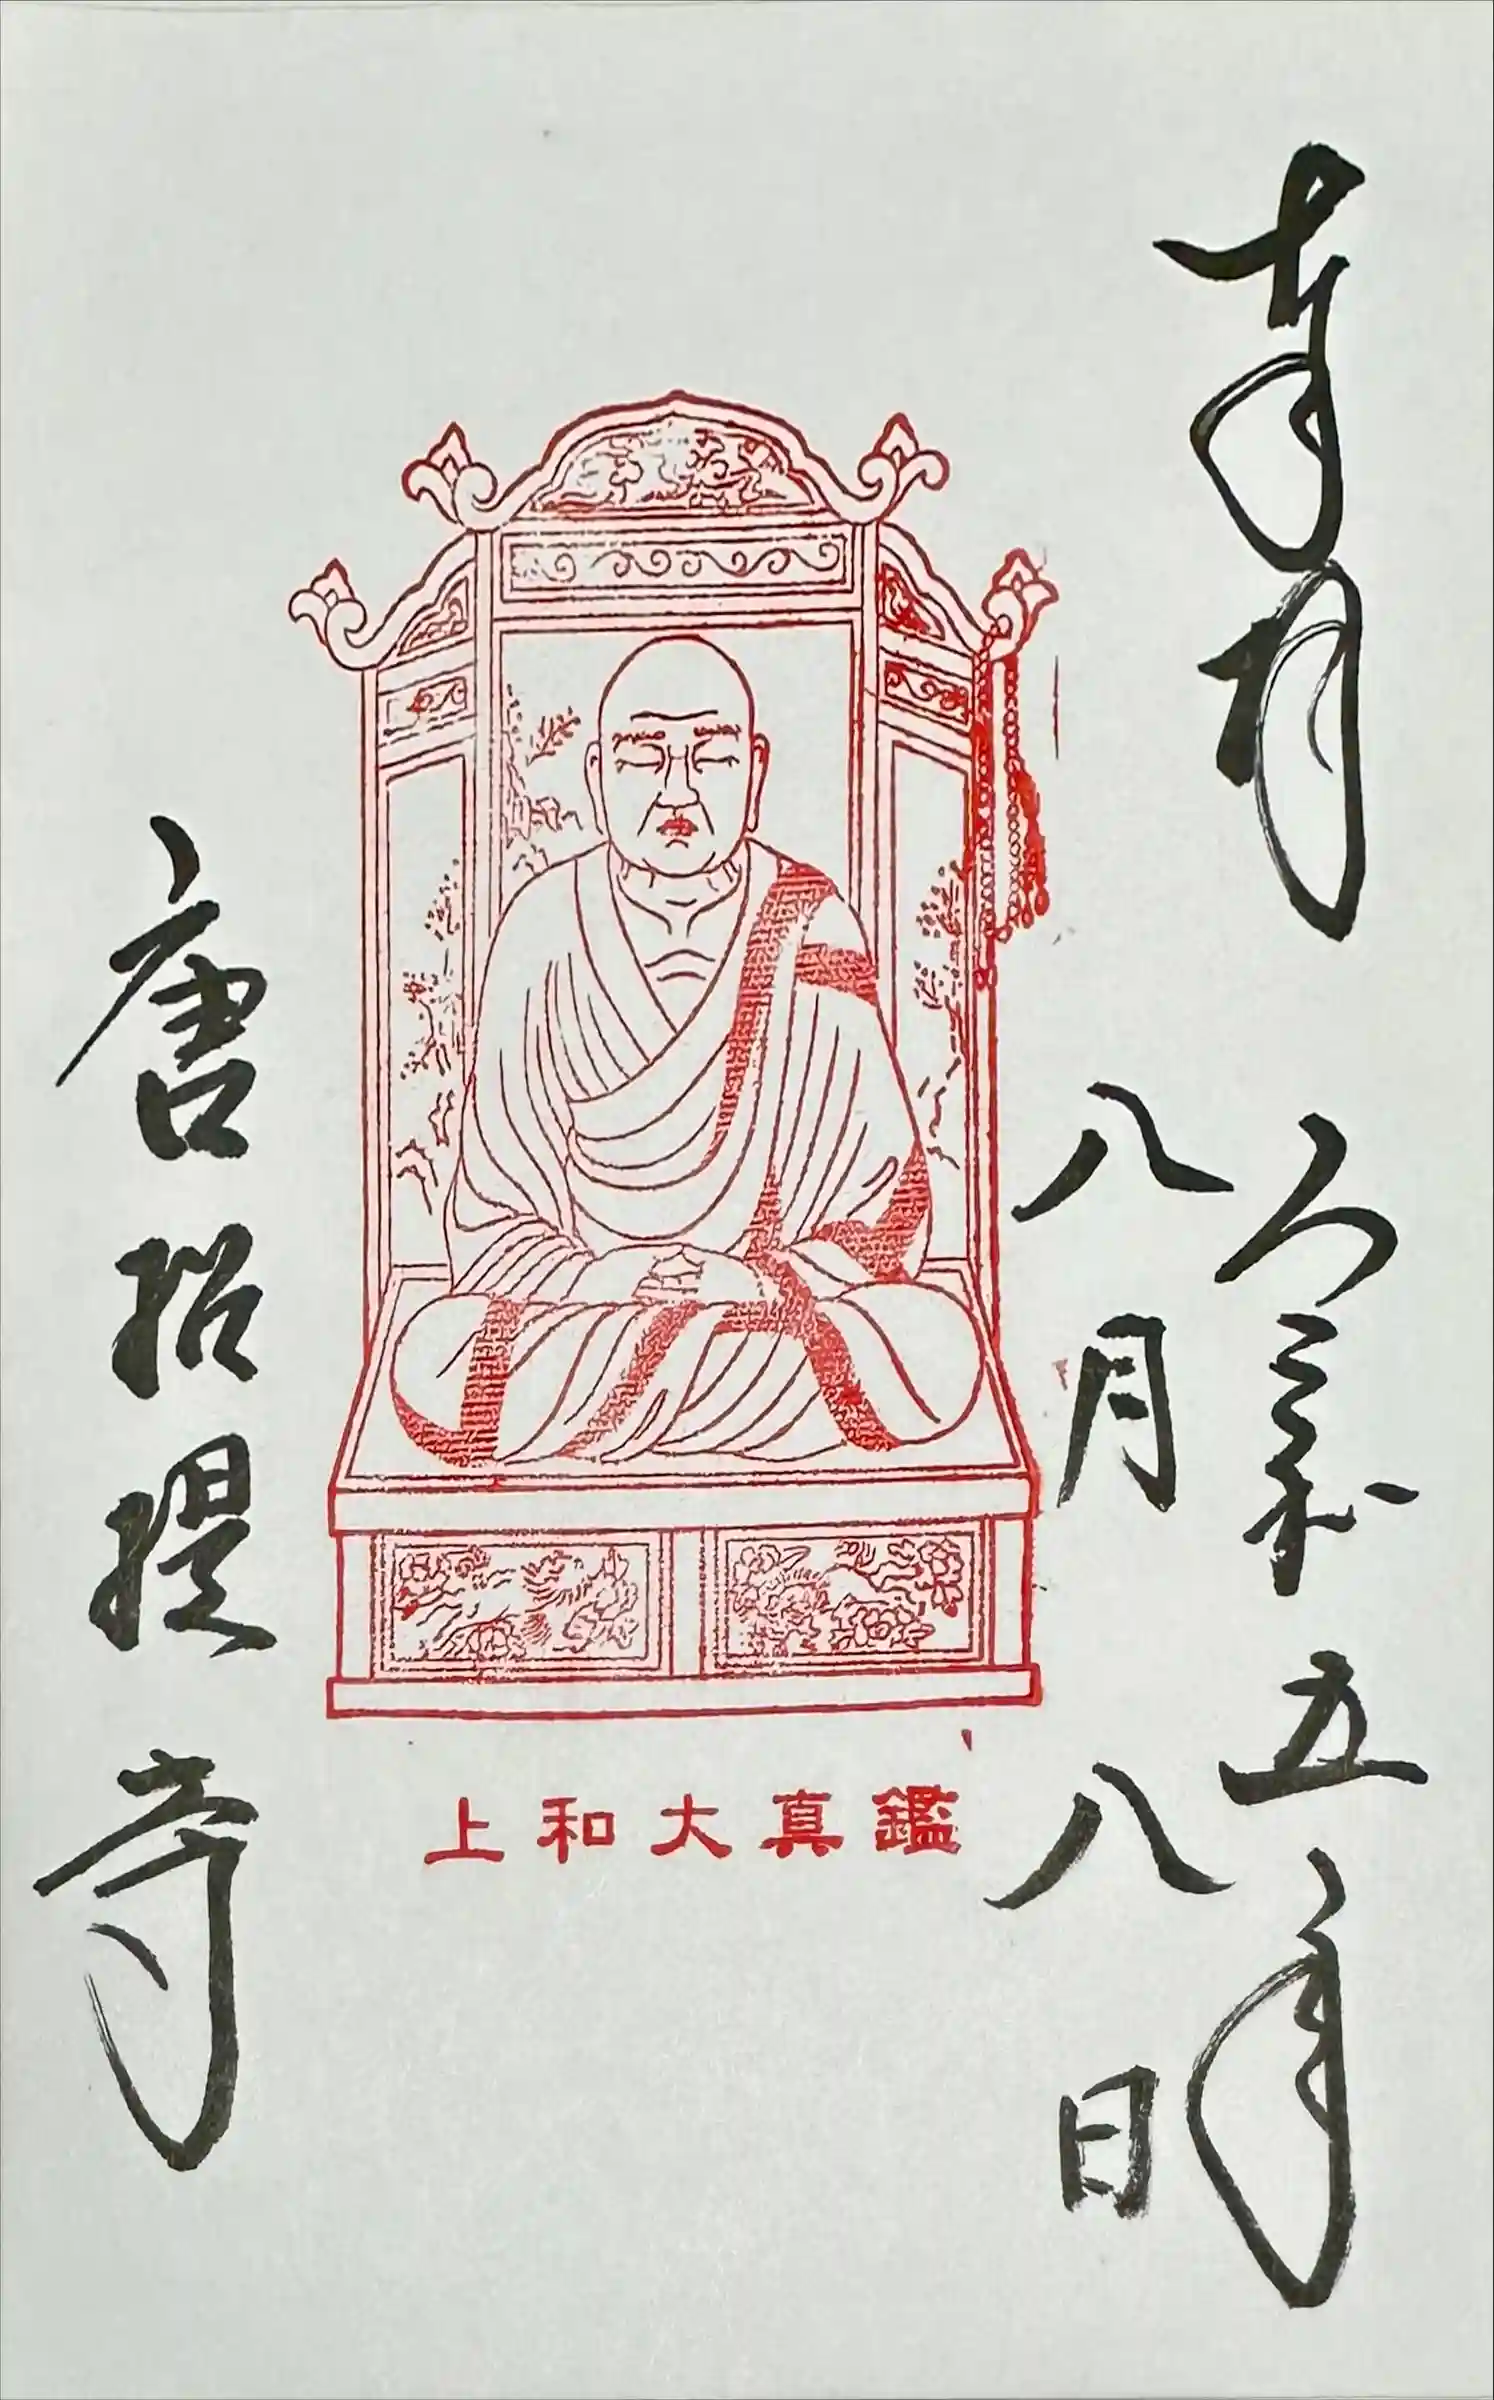 奉拝
令和五年
八月八日
鑑真大和上
唐招提寺